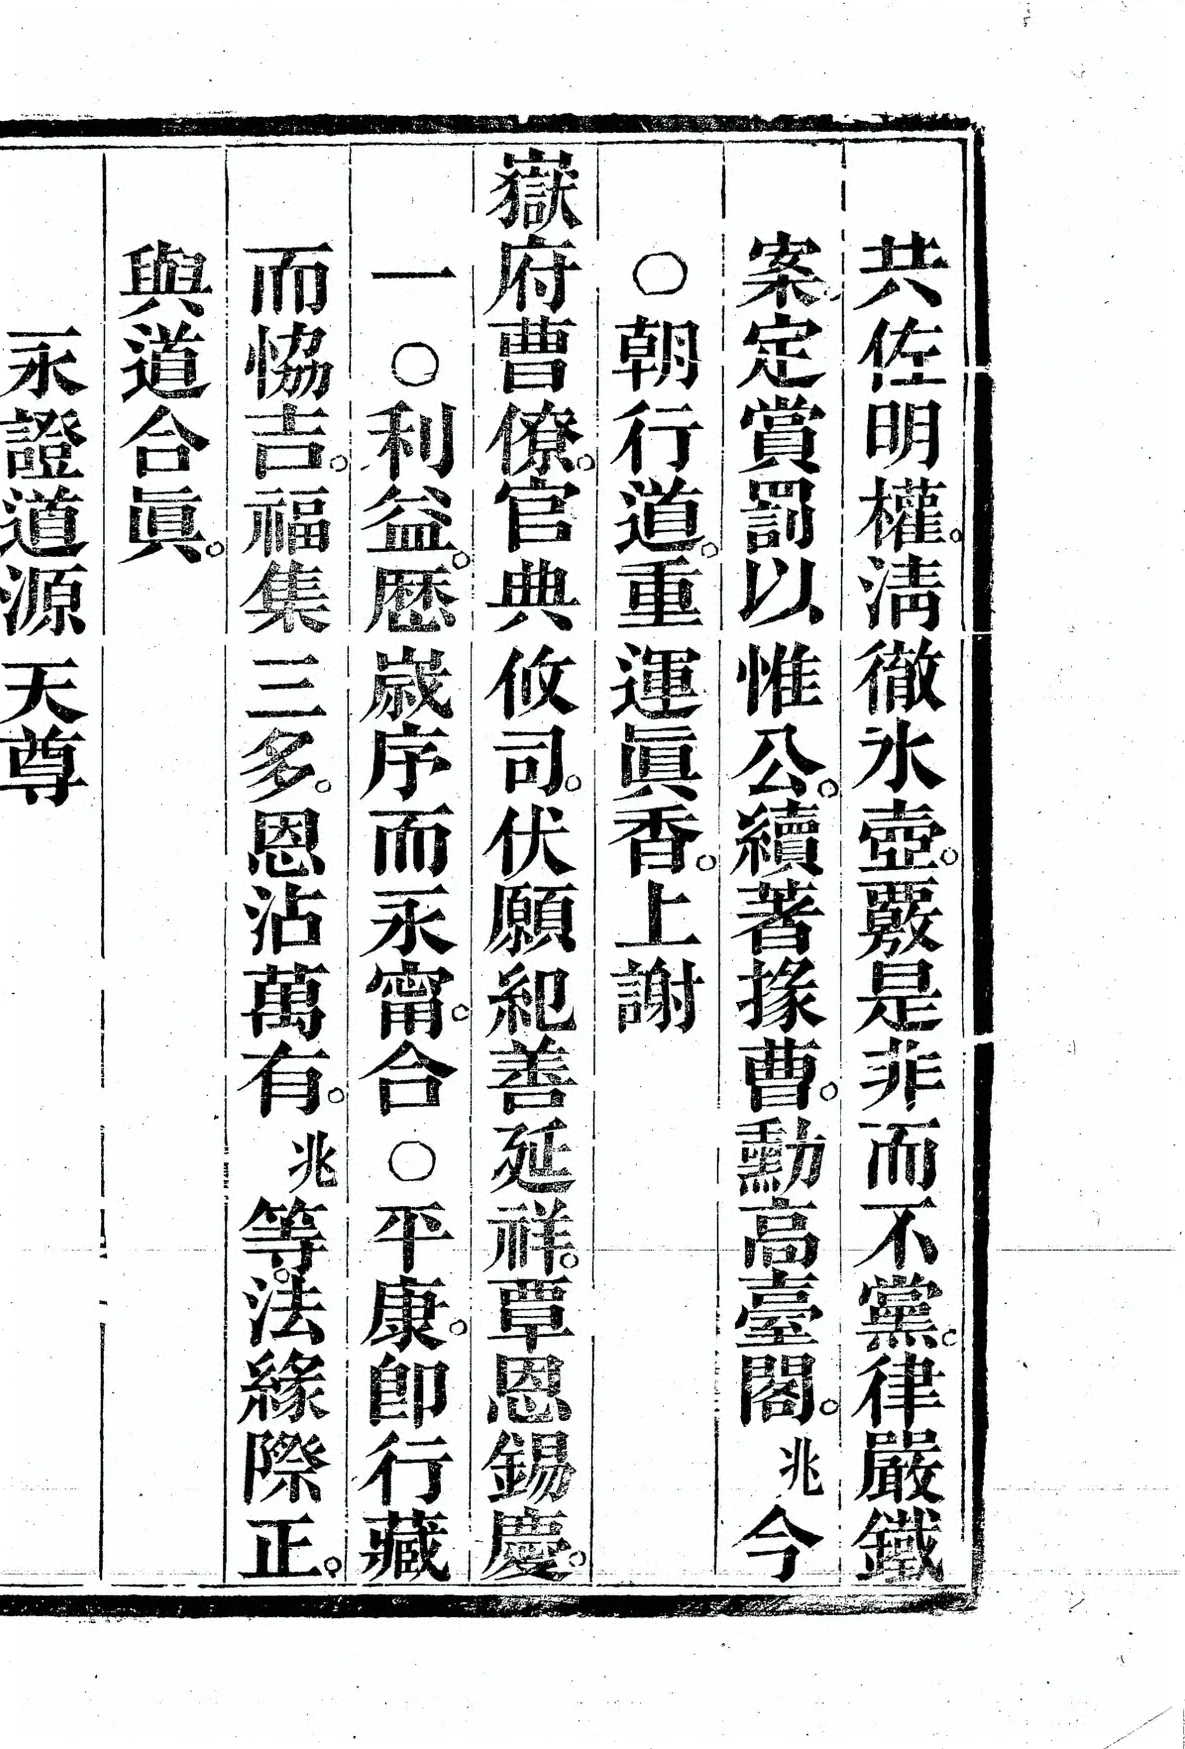 共佐明權。淸徹氷壺。覈是非而不黨。律嚴鐵
案。定賞罰以惟公。續著掾曹。勳高臺閣。兆今
○朝行道。重運眞香。上謝
嶽府曹僚。官典攸司。伏願紀善延祥。覃恩錫慶。
一○利益。歷歲序而永甯。合○平康。卽行藏
而恊吉。福集三多。恩沾萬有。兆等。法緣際正。
與道合眞。
永證道源天尊